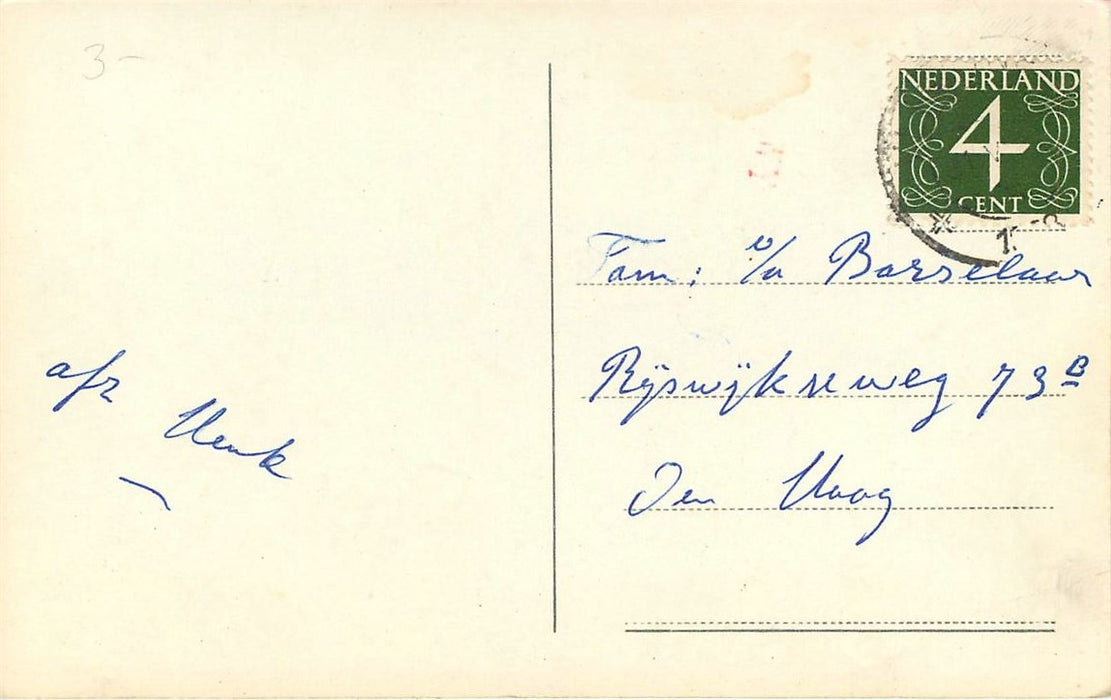 3-
NEDERLAND
4
CENT
Fam: v/d Borselaar
Rijswijkseweg 73B
Den Haag
afz
Henk